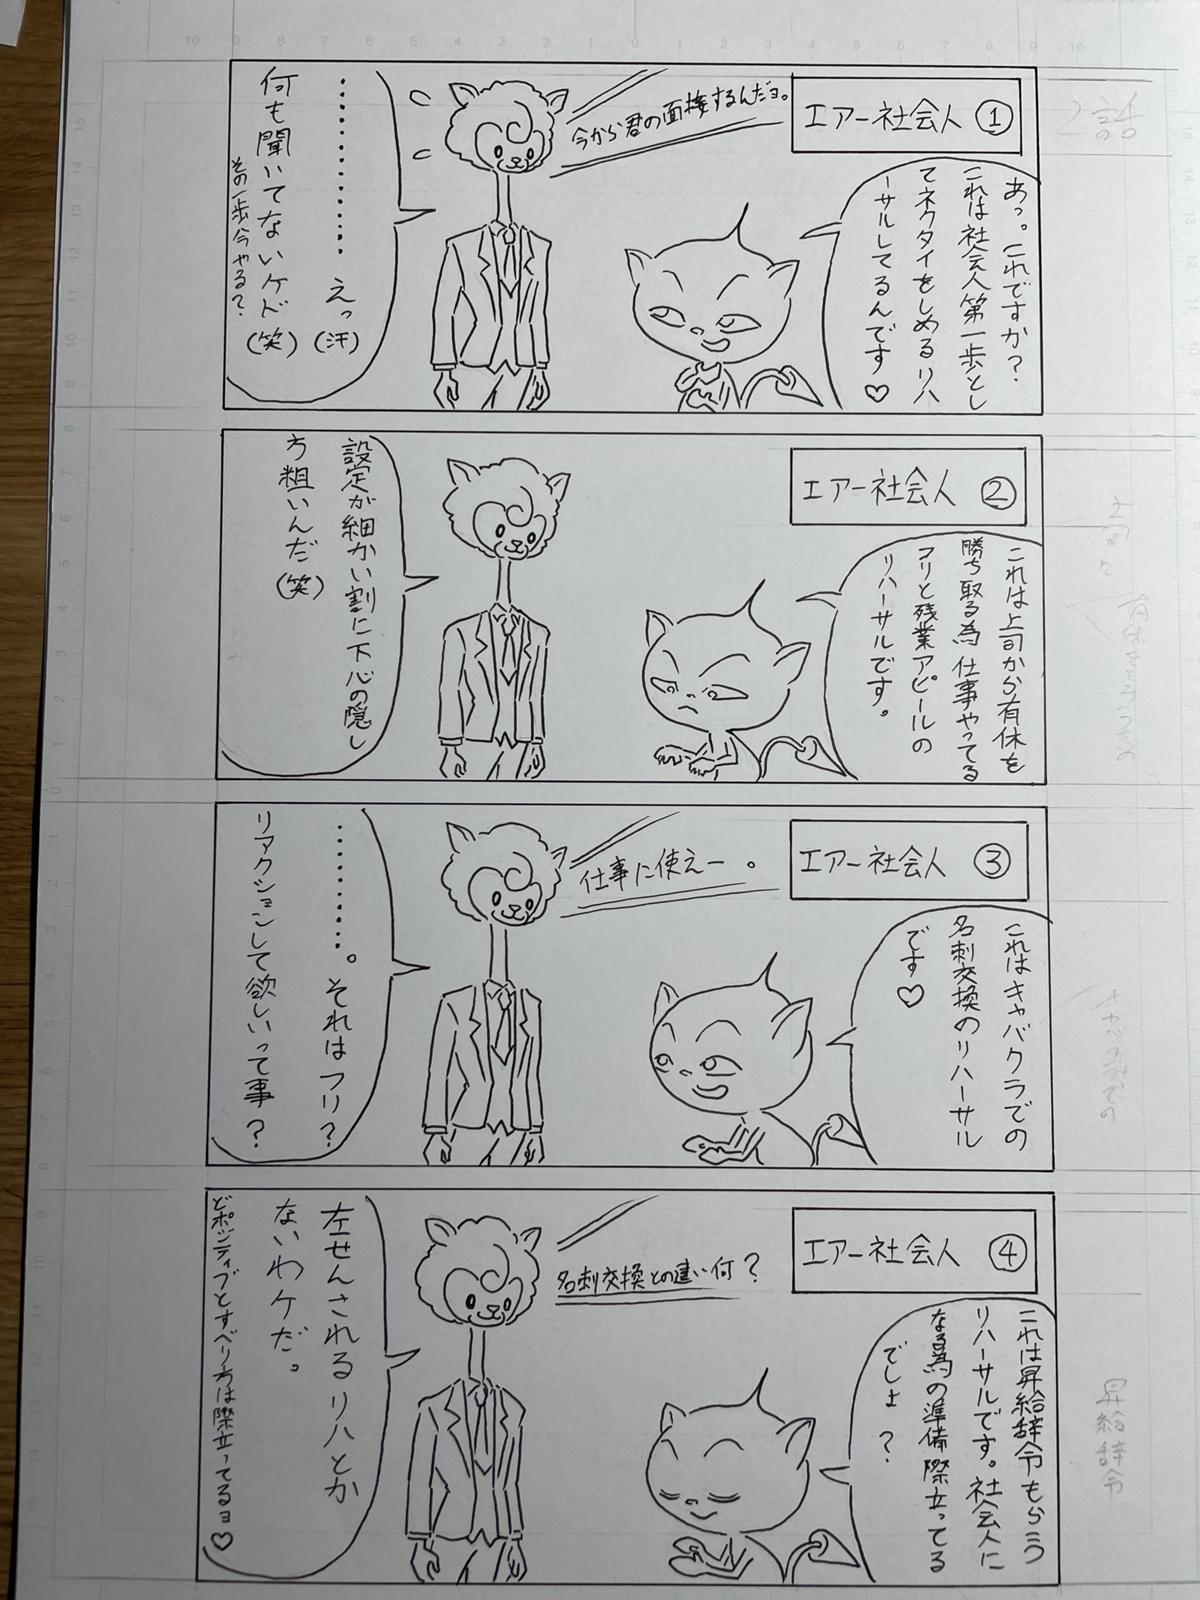 エアー社会人 ①
あっ。これですか?
これは社会人第一歩とし
てネクタイをしめるリハ
ーサルしてるんです♡
今から君の面接するんだヨ。
‥‥‥‥‥‥えっ(汗)
何も聞いてないケド(笑)
その一歩今やる?
エアー社会人 ②
これは上司から有休を
勝ち取る為 仕事やってる
フリと残業アピールの
リハーサルです。
設定が細かい割に下心の隠し
方粗いんだ(笑)
エアー社会人 ③
これはキャバクラでの
名刺交換のリハーサル
です♡
仕事に使えー。
‥‥‥‥‥。それはフリ?
リアクションして欲しいって事?
エアー社会人 ④
これは昇給辞令もらう
リハーサルです。社会人に
なる為の準備際立ってる
でしょ?
名刺交換との違い何?
左せんされるリハとか
ないわケだ。
どポジティブとすべり方は際立ってるヨ♡
昇給辞令